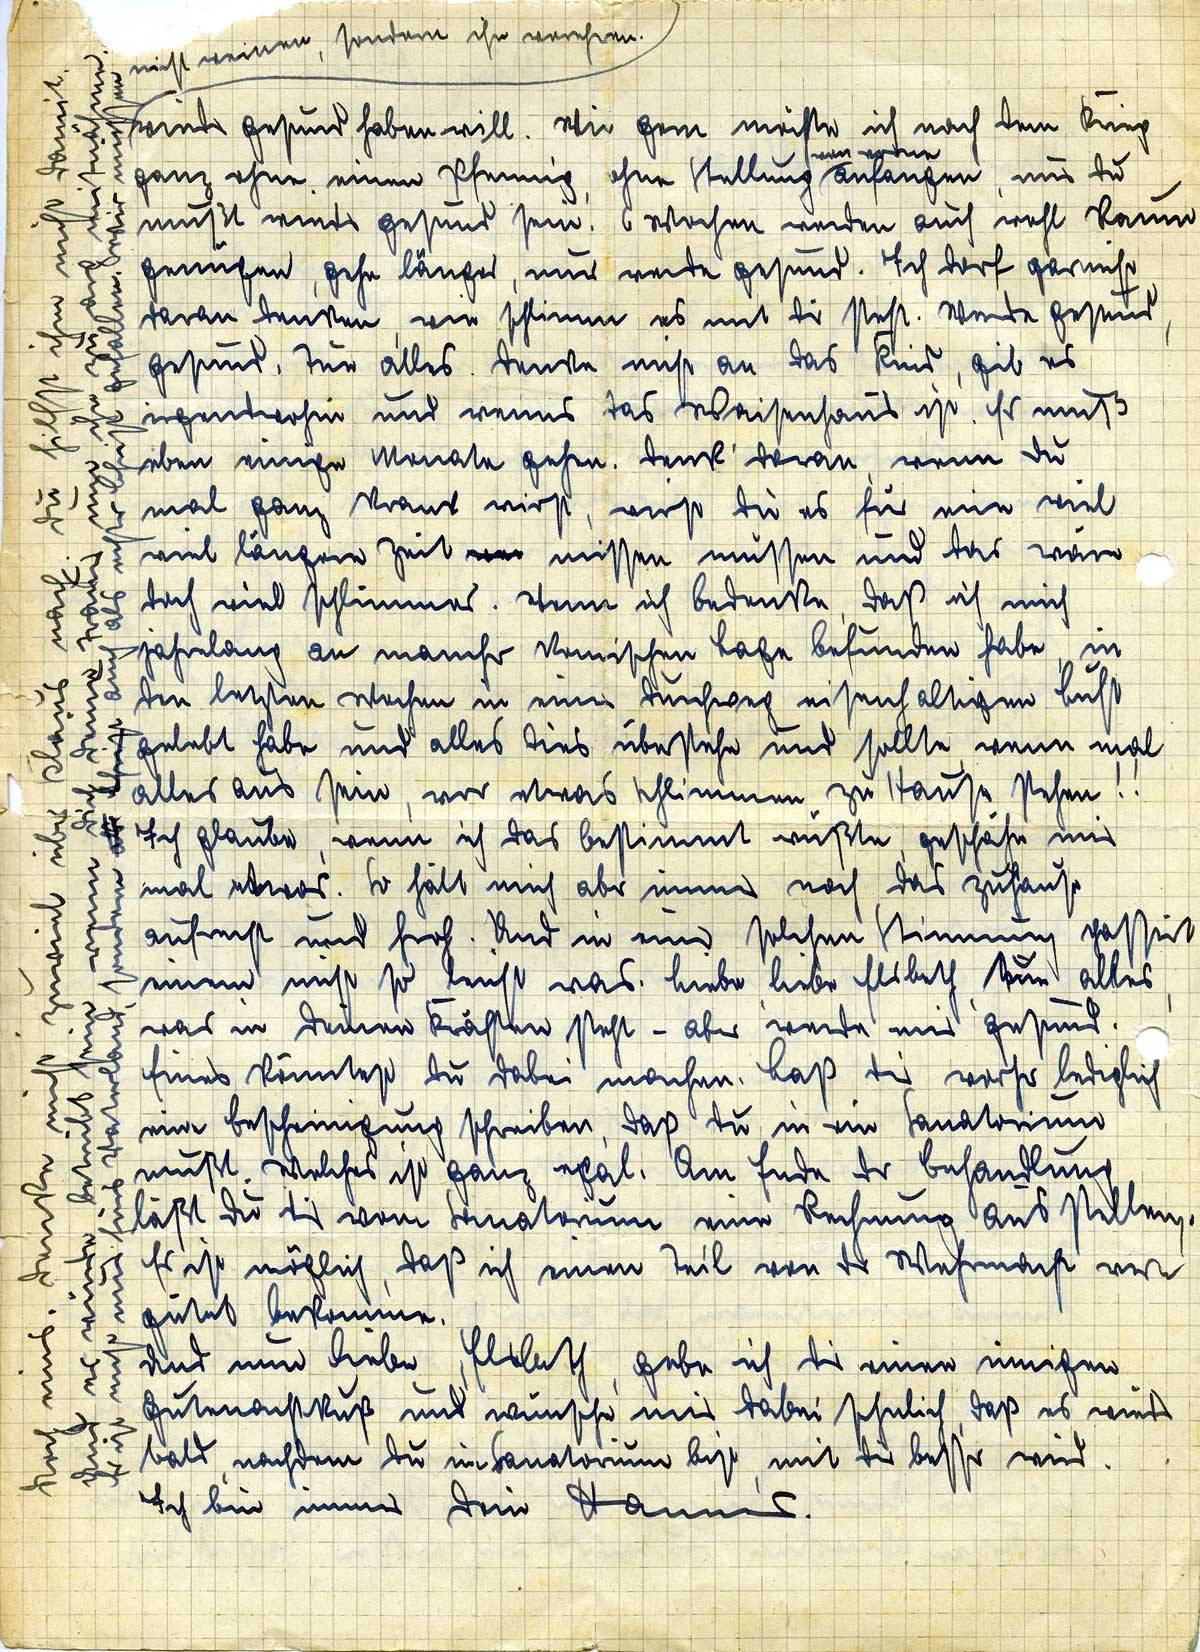 wieder gesund haben will. Wie gern möchte ich nach dem Krieg
ganz ohne einen Pfennig, ohne Stellung von vorne anfangen, nur du
mußt wieder gesund sein. 6 Wochen werden auch wohl kaum
genügen, gehe länger, nur werde gesund. Ich darf garnicht
daran denken, wie schlimm es mit dir steht. Werde gesund,
gesund. Tue alles. Denke nicht an das Kind, gib es
irgendwohin und wenns das Waisenhaus ist. Es muß
eben einige Monate gehen. Denk' daran, wenn du
mal ganz krank wirst, wirst du es für eine viel
viel längere Zeit missen müssen und das wäre
doch viel schlimmer. Wenn ich bedenke, daß ich mich
jahrelang an mancher komischen Lage befunden habe, in
den letzten Wochen in einer durchweg eisenhaltigen Luft
gelebt habe und alles dies überstehe und sollte, wenn mal
alles aus sein, vor etwas Schlimmem zu Hause stehen!!
Ich glaube, wenn ich das bestimmt wüßte, geschähe mir
mal etwas. So hält mich aber immer noch das Zuhause
aufrecht und froh. Und in einer solchen Stimmung passiert
einem nicht so leicht was. Liebe, liebe Elsbeth, tue alles,
was in deinen Kräften steht – aber werde mir gesund.
Eines könntest du dabei machen. Laß dir vorher lediglich
eine Bescheinigung schreiben, daß du in ein Sanatorium
mußt. Welches ist ganz egal. Am Ende der Behandlung
läßt du dir vom Sanatorium eine Rechnung ausstellen.
Es ist möglich, daß ich einen Teil von der Wehrmacht ver-
gütet bekomme.
Und nun liebe Elsbeth, gebe ich dir einen innigen
Gutenachtkuß und wünsche mir dabei sehnlich, daß es wieder
bald, nachdem du im Sanatorium bist, mit dir besser wird.
Ich bin immer dein Hannes.
Noch eins. Denke nicht zuviel über Klaus nach. Du hilfst ihm nicht damit.
Und er würde betrübt sein, wenn er dich deine Krankheit um ihn zu arg mitnähme.
Er ist nicht nur fürs Vaterland, sondern auch als gefallen. Wir müssen
nicht weinen, sondern ihn verehren.